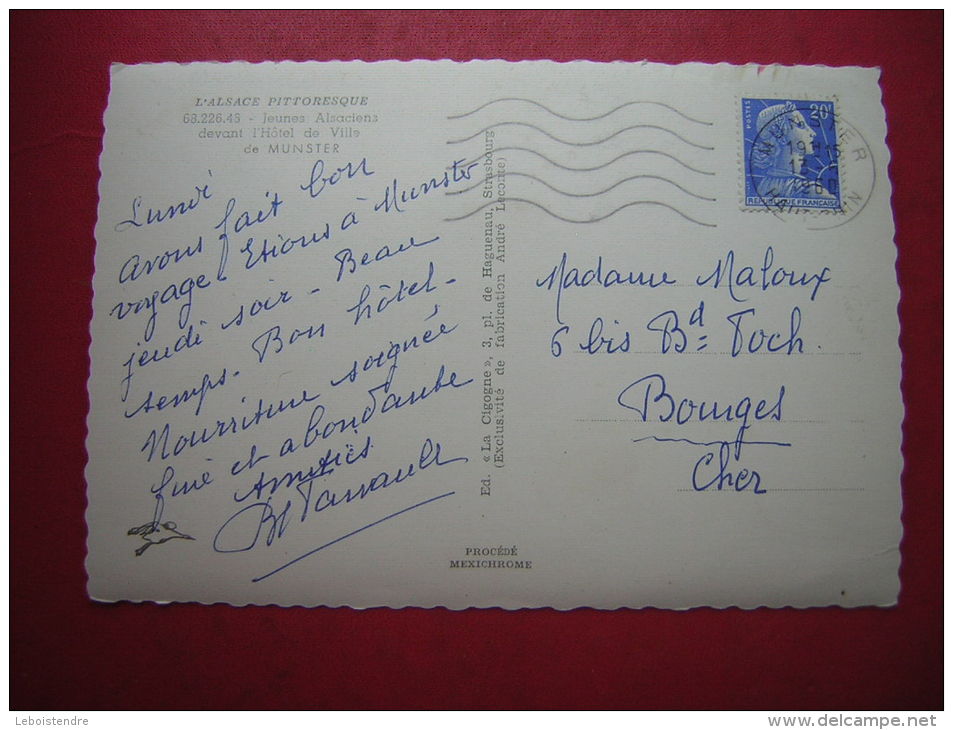 L'ALSACE PITTORESQUE
68.226.48 - Jeunes Alsaciens
devant l'Hôtel de Ville
de MUNSTER
Lundi
avons fait bon
voyage. Etions à Munster
jeudi soir - Beau
temps. Bon hôtel -
Nourriture soignée
fine et abondante
Amitiés
Ed. « La Cigogne », 3, pl. de Haguenau, Strasbourg
(Exclusivité de fabrication André Leconte)
PROCÉDÉ
MEXICHROME
POSTES
20F
REPUBLIQUE FRANÇAISE
MUNSTER
19H15
1260
HAUT-RHIN
Madame Maloux
6 bis Bd Foch.
Bourges
Cher
Leboistendre
www.delcampe.net